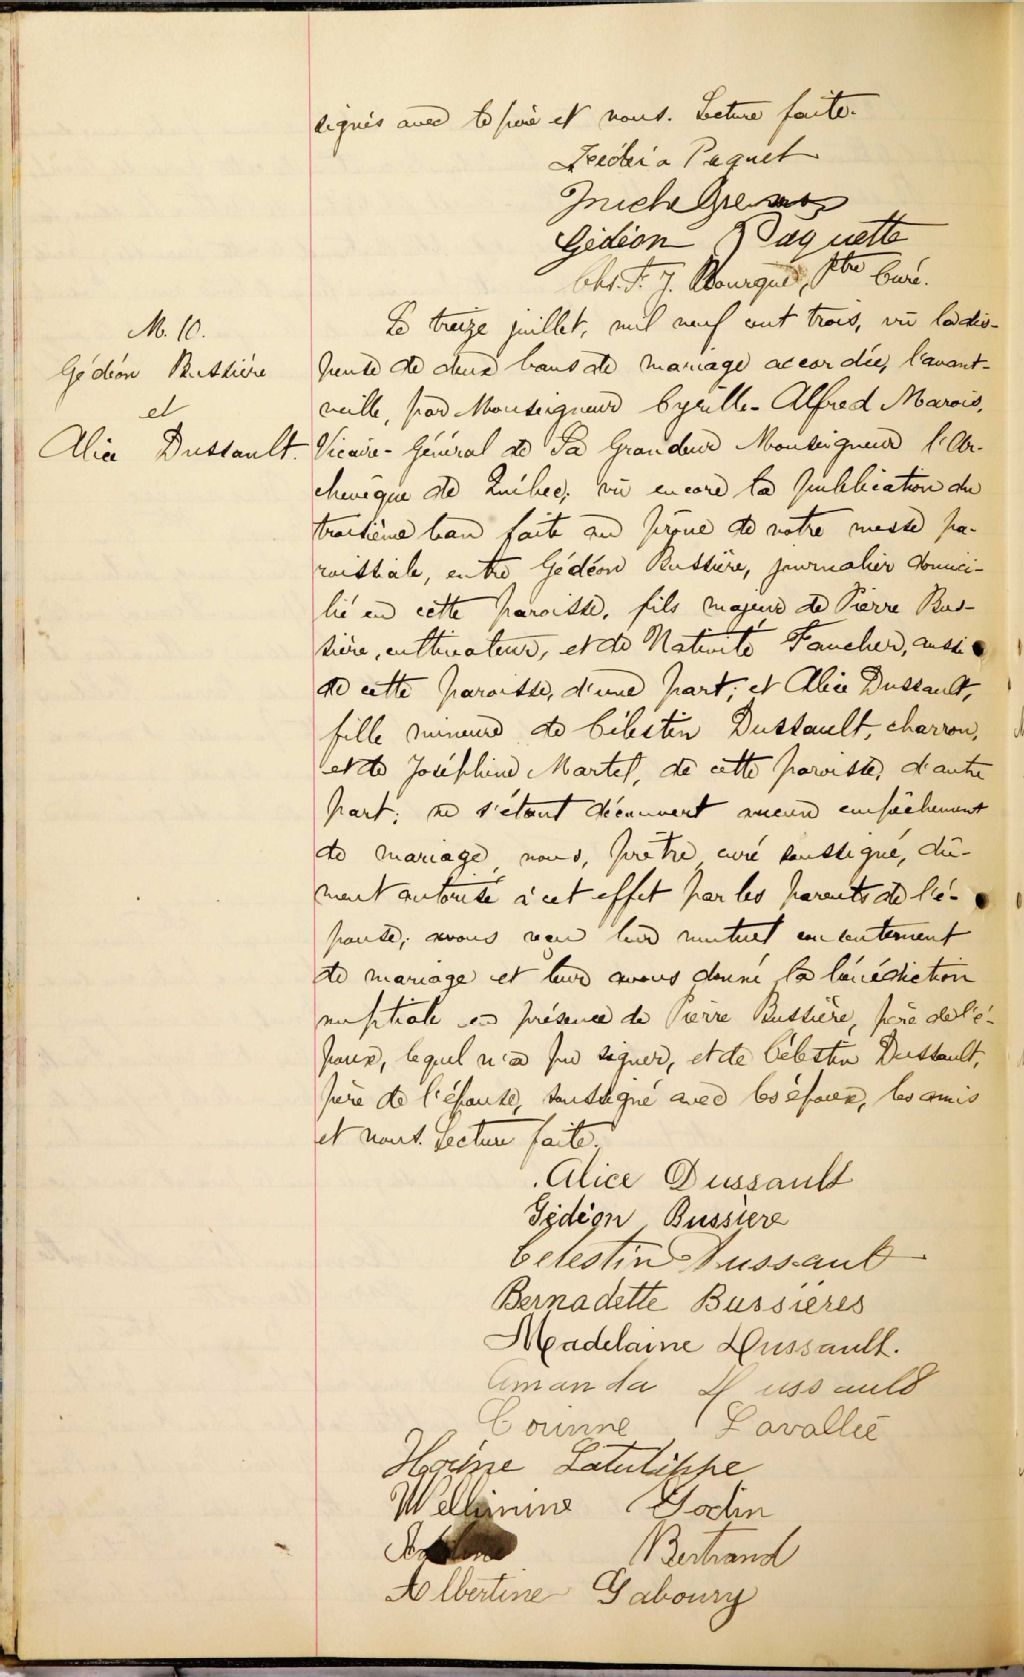 signés avec le père et nous. Lecture faite.
Paquet
Gédéon Paquette
Chs. F. J. Bourque, Ptre Curé.
M. 10.
Gédéon Bussière
et
Alice Dussault.
Le treize juillet, mil neuf cent trois, vû la dis-
pense de deux bans de mariage accordée, l'avant-
veille, par Monseigneur Cyrille-Alfred Marois,
Vicaire-Général de Sa Grandeur Monseigneur l'Ar-
chevêque de Québec; vû encore la publication du
troisième ban faite au prône de notre messe pa-
roissiale, entre Gédéon Bussière, journalier domici-
lié en cette paroisse, fils majeur de Pierre Bus-
sière, cultivateur, et de Nativité Faucher, aussi
de cette paroisse, d'une part; et Alice Dussault,
fille mineure de Célestin Dussault, charron,
et de Joséphine Martel, de cette paroisse, d'autre
part; ne s'étant découvert aucun empêchement
de mariage, nous, prêtre, curé soussigné, dû-
ment autorisé à cet effet par les parents de l'é-
pouse; avons reçu leur mutuel consentement
de mariage et leur avons donné la bénédiction
nuptiale en présence de Pierre Bussière, père de l'é-
poux, lequel n'a pu signer, et de Célestin Dussault,
père de l'épouse, soussigné avec les époux, les amis
et nous. Lecture faite.
Alice Dussault
Gédéon Bussière
Celestin Dussault
Bernadette Bussières
Madelaine Dussault.
Amanda Dussault
Corinne Lavallée
Latulippe
Wellimine Godin
Bertrand
Albertine Gaboury